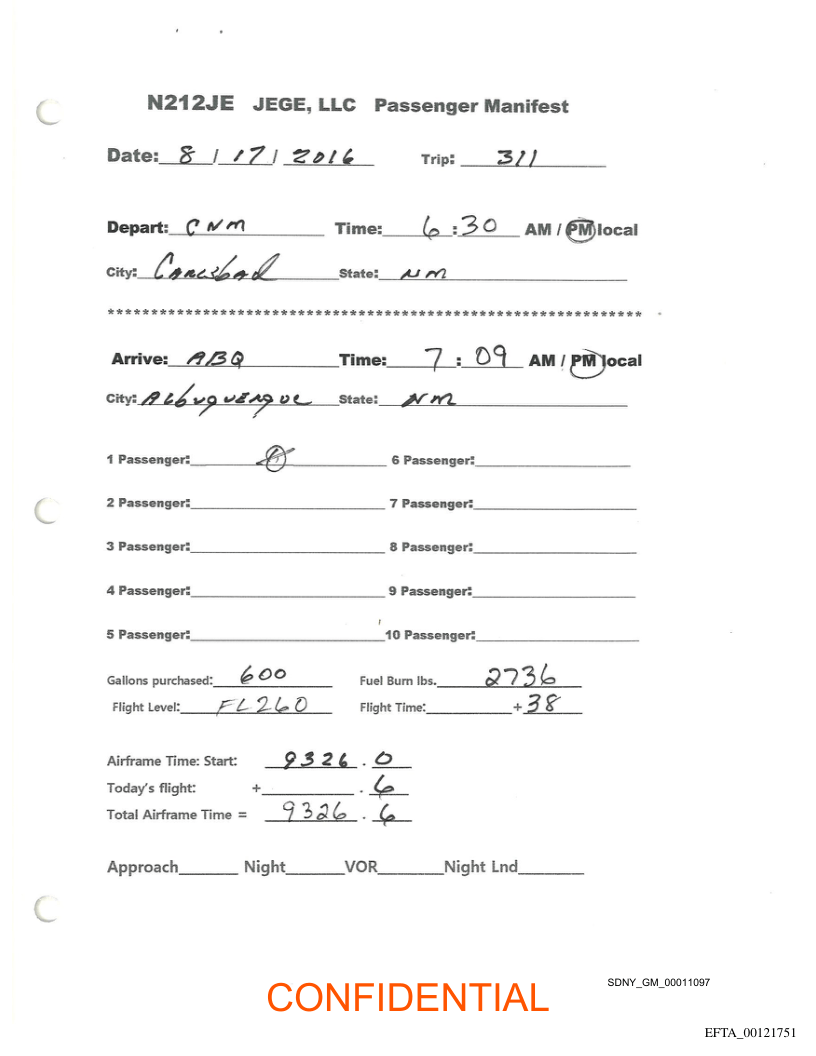 N212JE JEGE, LLC Passenger Manifest
Date: 8 / 17 / 2016 Trip: 311
Depart: CNM Time: 6:30 AM / PM local
City: Carlsbad State: NM
**************************************************************
Arrive: ABQ Time: 7:09 AM / PM local
City: Albuquerque State: NM
1 Passenger: 6 Passenger:
2 Passenger: 7 Passenger:
3 Passenger: 8 Passenger:
4 Passenger: 9 Passenger:
5 Passenger: 10 Passenger:
Gallons purchased: 600 Fuel Burn lbs. 2736
Flight Level: FL260 Flight Time: +38
Airframe Time: Start: 9326.0
Today's flight: + .6
Total Airframe Time = 9326.6
Approach Night VOR Night Lnd
SDNY_GM_00011097
CONFIDENTIAL
EFTA_00121751